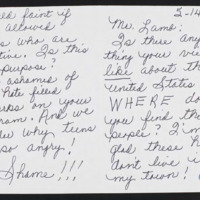 ld faint if
allowed
s who are
tive. Is this
purpose?
ashamed of
hate filled
rks on your
ram. And we
der why teens
so angry!
Shame!!!
2-14
Mr. Lamb:
Is there any
thing you
like about the
United States
WHERE do
you find these
people? I'm
glad these
don't live i
my town!